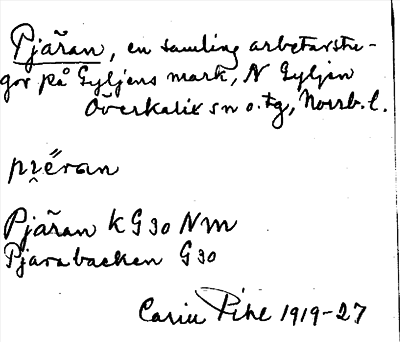 Pjäran, en samling arbetarstu-
gor på Gyljens mark, N Gyljen
Överkalix sn o. tg, Norrb. l.
Pjäran k G 30 N m
Pjarabacken G 30
Carin Pihl 1919-27